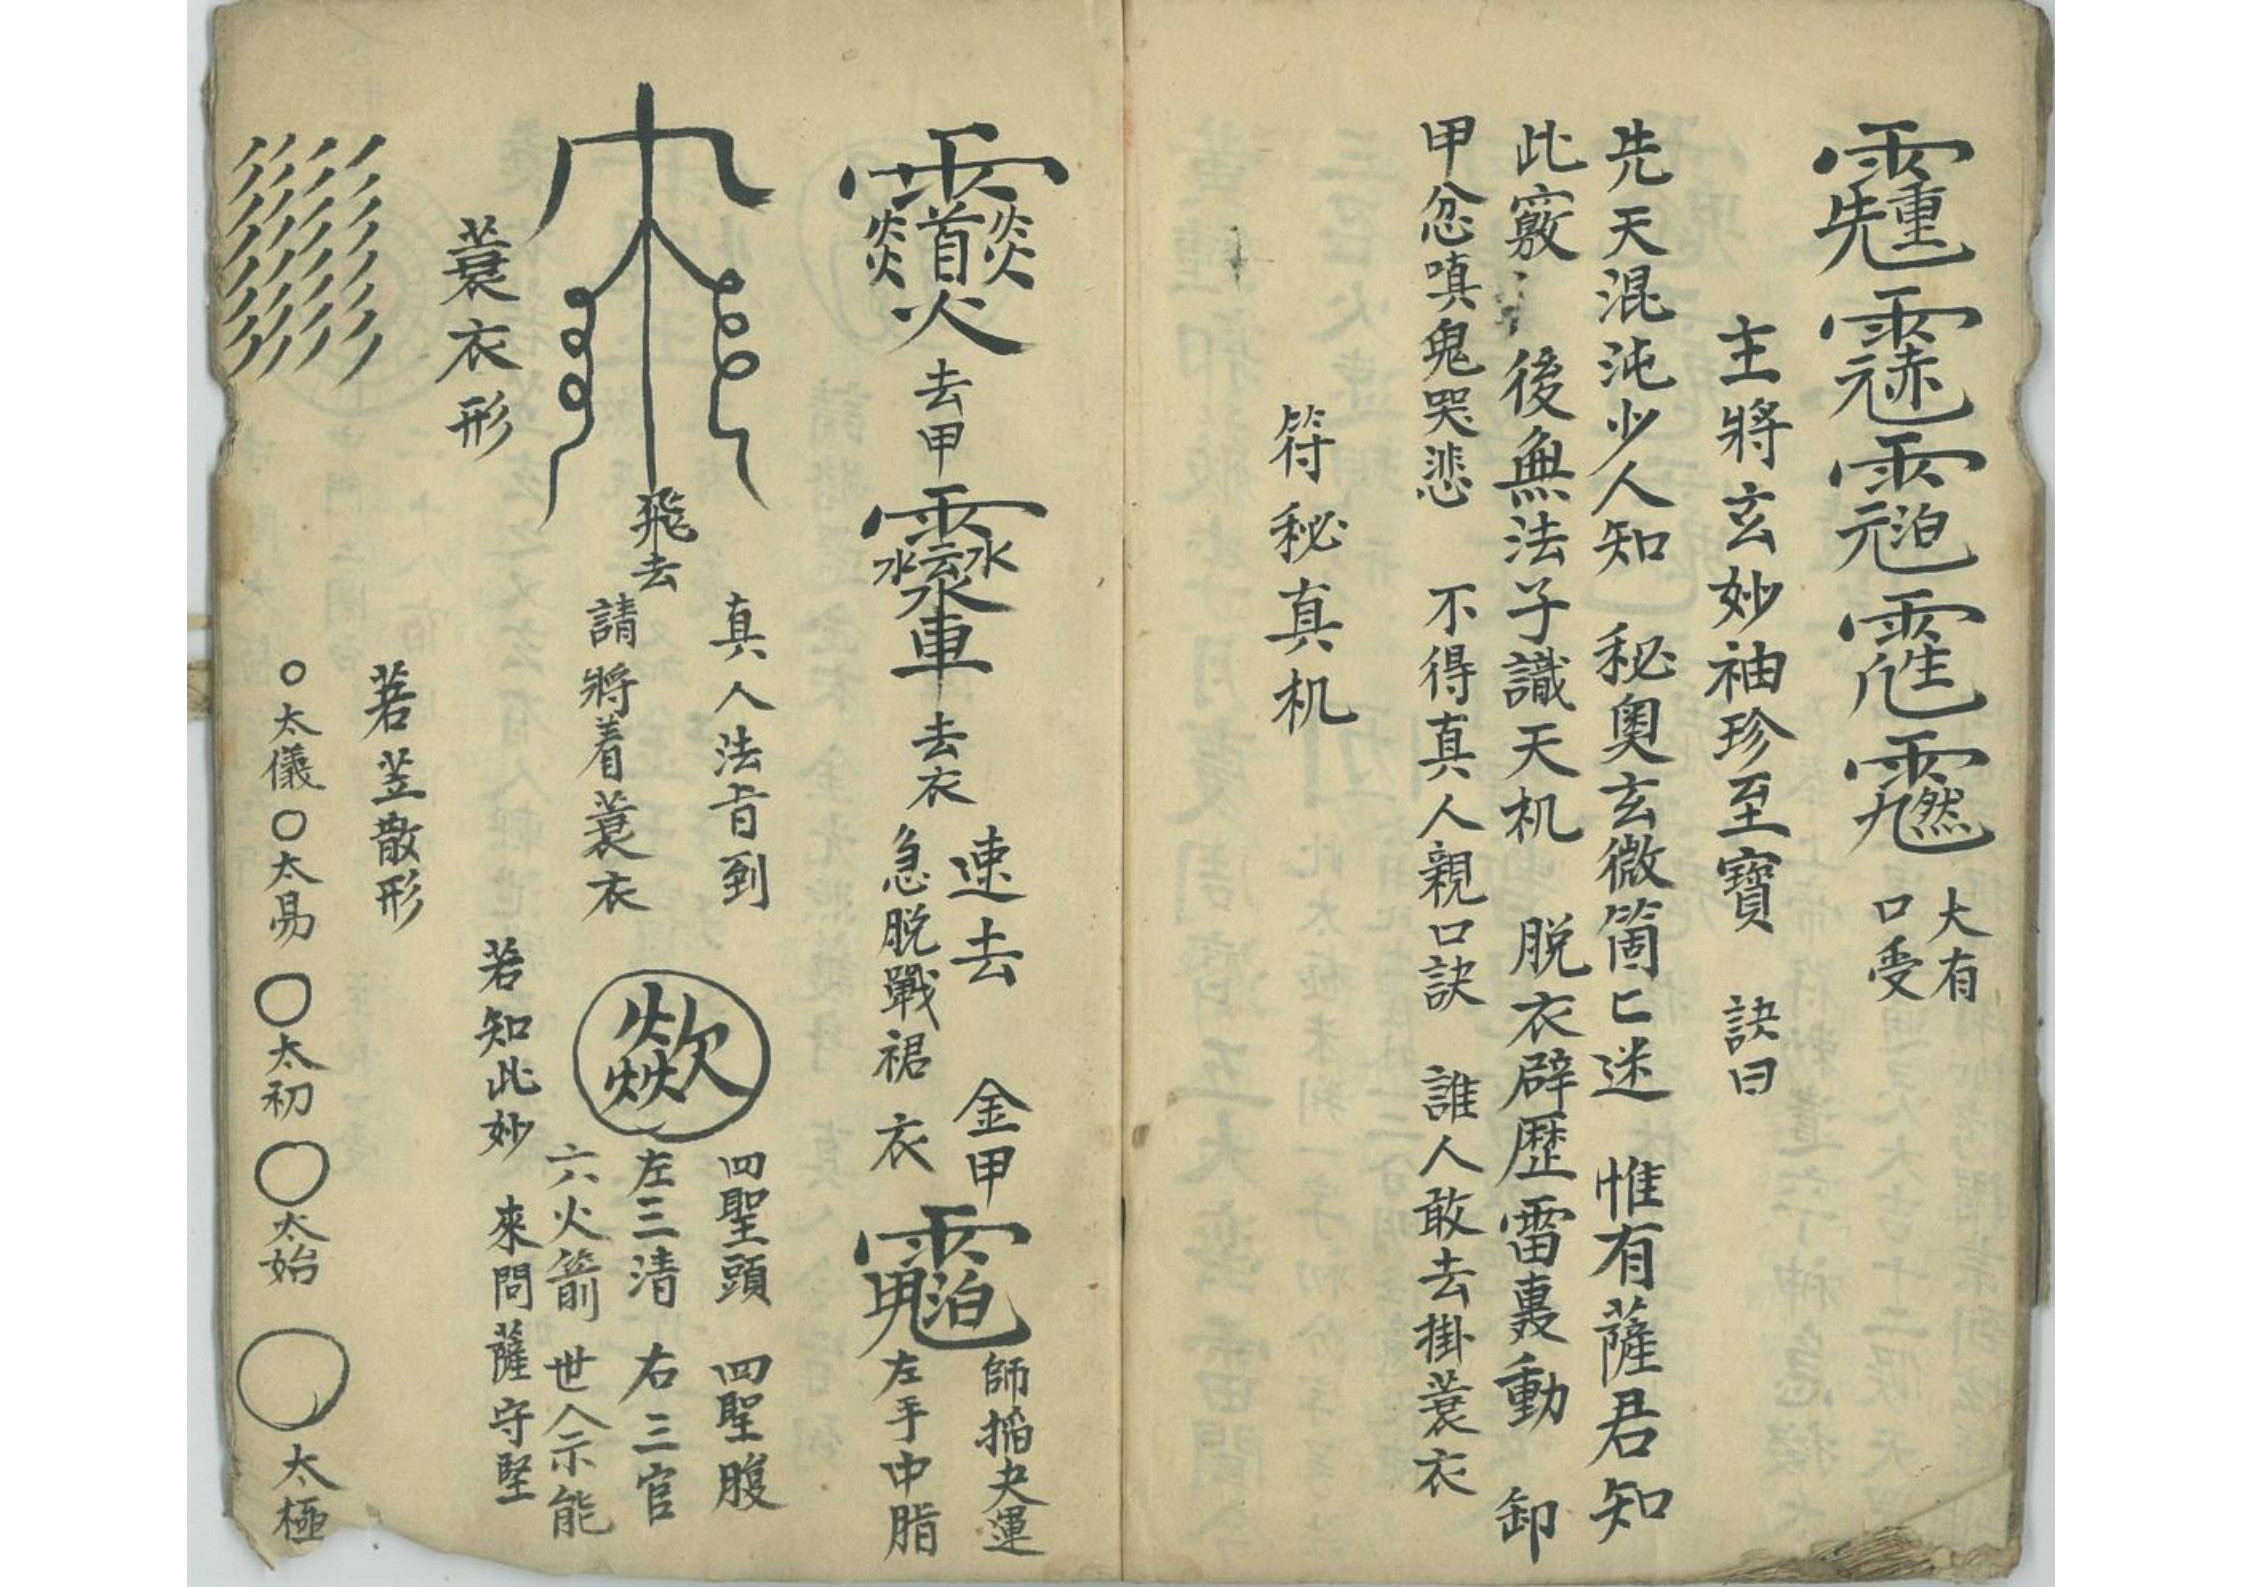 大有
口受
主將玄妙袖珍至寶 訣曰
先天混沌少人知 秘奧玄微箇匕迷 惟有薩君知
此竅 後無法子識天机 脱衣辟歷雷裏動 卸
甲忿嗔鬼哭悲 不得真人親口訣 誰人敢去掛蓑衣
符秘真机
去甲
去衣
速去 金甲
急脱戰裙衣
師 運
左手中脂
飛去
真人法旨到
請將着蓑衣
四聖頭 四聖腹
左三清 右三官
六火箭 世人示能
若知此妙 來問薩守堅
蓑衣形
若笠散形
太儀 太易 太初 太始 太極